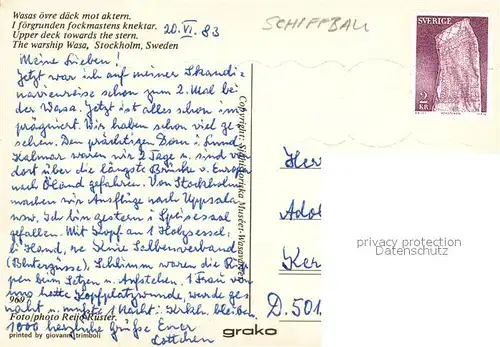 Wasas övre däck mot aktern.
I förgrunden fockmastens knektar.
Upper deck towards the stern.
The warship Wasa, Stockholm, Sweden
20.VI.83
SCHIFFBAU
SVERIGE
2 KR
Meine Lieben!
Jetzt war ich auf meiner Skandi-
navienreise schon zum 2. Mal bei
der Wasa. Jetzt ist alles schon im-
prägniert. Wir haben schon viel ge-
sehen. Den prächtigen Dom in Lund,
Kalmar waren wir 2 Tage u. sind von
dort über die längste Brücke v. Europa
nach Öland gefahren. Von Stockholm
machen wir Ausflüge nach Uppsala
usw. Ich bin gestern i. Speisesaal
gefallen. Mit Kopf an 1 Holzsessel,
li Hand, re Knie Salbenverband
(Blutergüsse), Schlimm waren die Rip-
pen beim Setzen u. Aufstehen. 1 Frau von
uns hatte Kopfplatzwunde, wurde ge-
näht u. musste 1 Nacht i. Krkh. bleiben.
1000 herzliche Grüße Eurer
Lottchen
Copyright: Sjöhistoriska Museet-Wasavarvet
Her
Adol
Ker
D.501
privacy protection
Datenschutz
969
Foto/photo Reijo Rüster.
printed by giovanni trimboli
grako